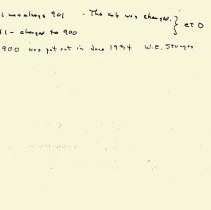 was always 901 . The cab was changed. } ETD
1 - changed to 900
900 was put out in June 1934 W.E. Sturges